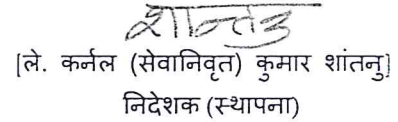 शान्तनु
[ले. कर्नल (सेवानिवृत) कुमार शांतनु]
निदेशक (स्थापना)